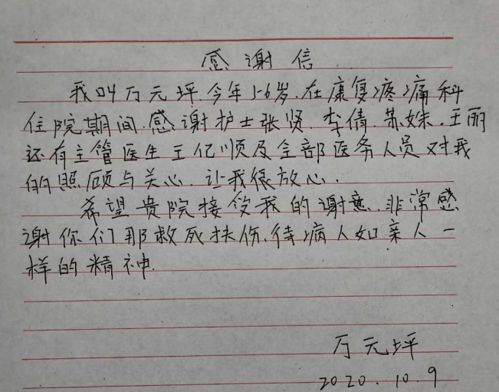 感谢信
我叫万元坪今年56岁.在康复疼痛科
住院期间.感谢护士张贤.李倩苏姝.王丽
还有主管医生王亿顺及全部医务人员对我
的照顾与关心.让我很放心.
希望贵院接受我的谢意.非常感
谢你们那救死扶伤.待病人如亲人一
样的精神.
万元坪
2020.10.9